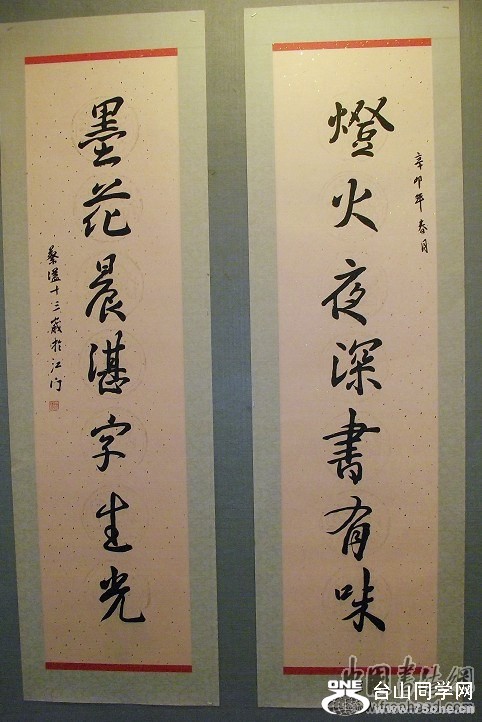 燈火夜深書有味
辛卯年春月
墨花晨湛字生光
十三歲於江門
中国书法网
ONE 台山同学网
www.75one.cn